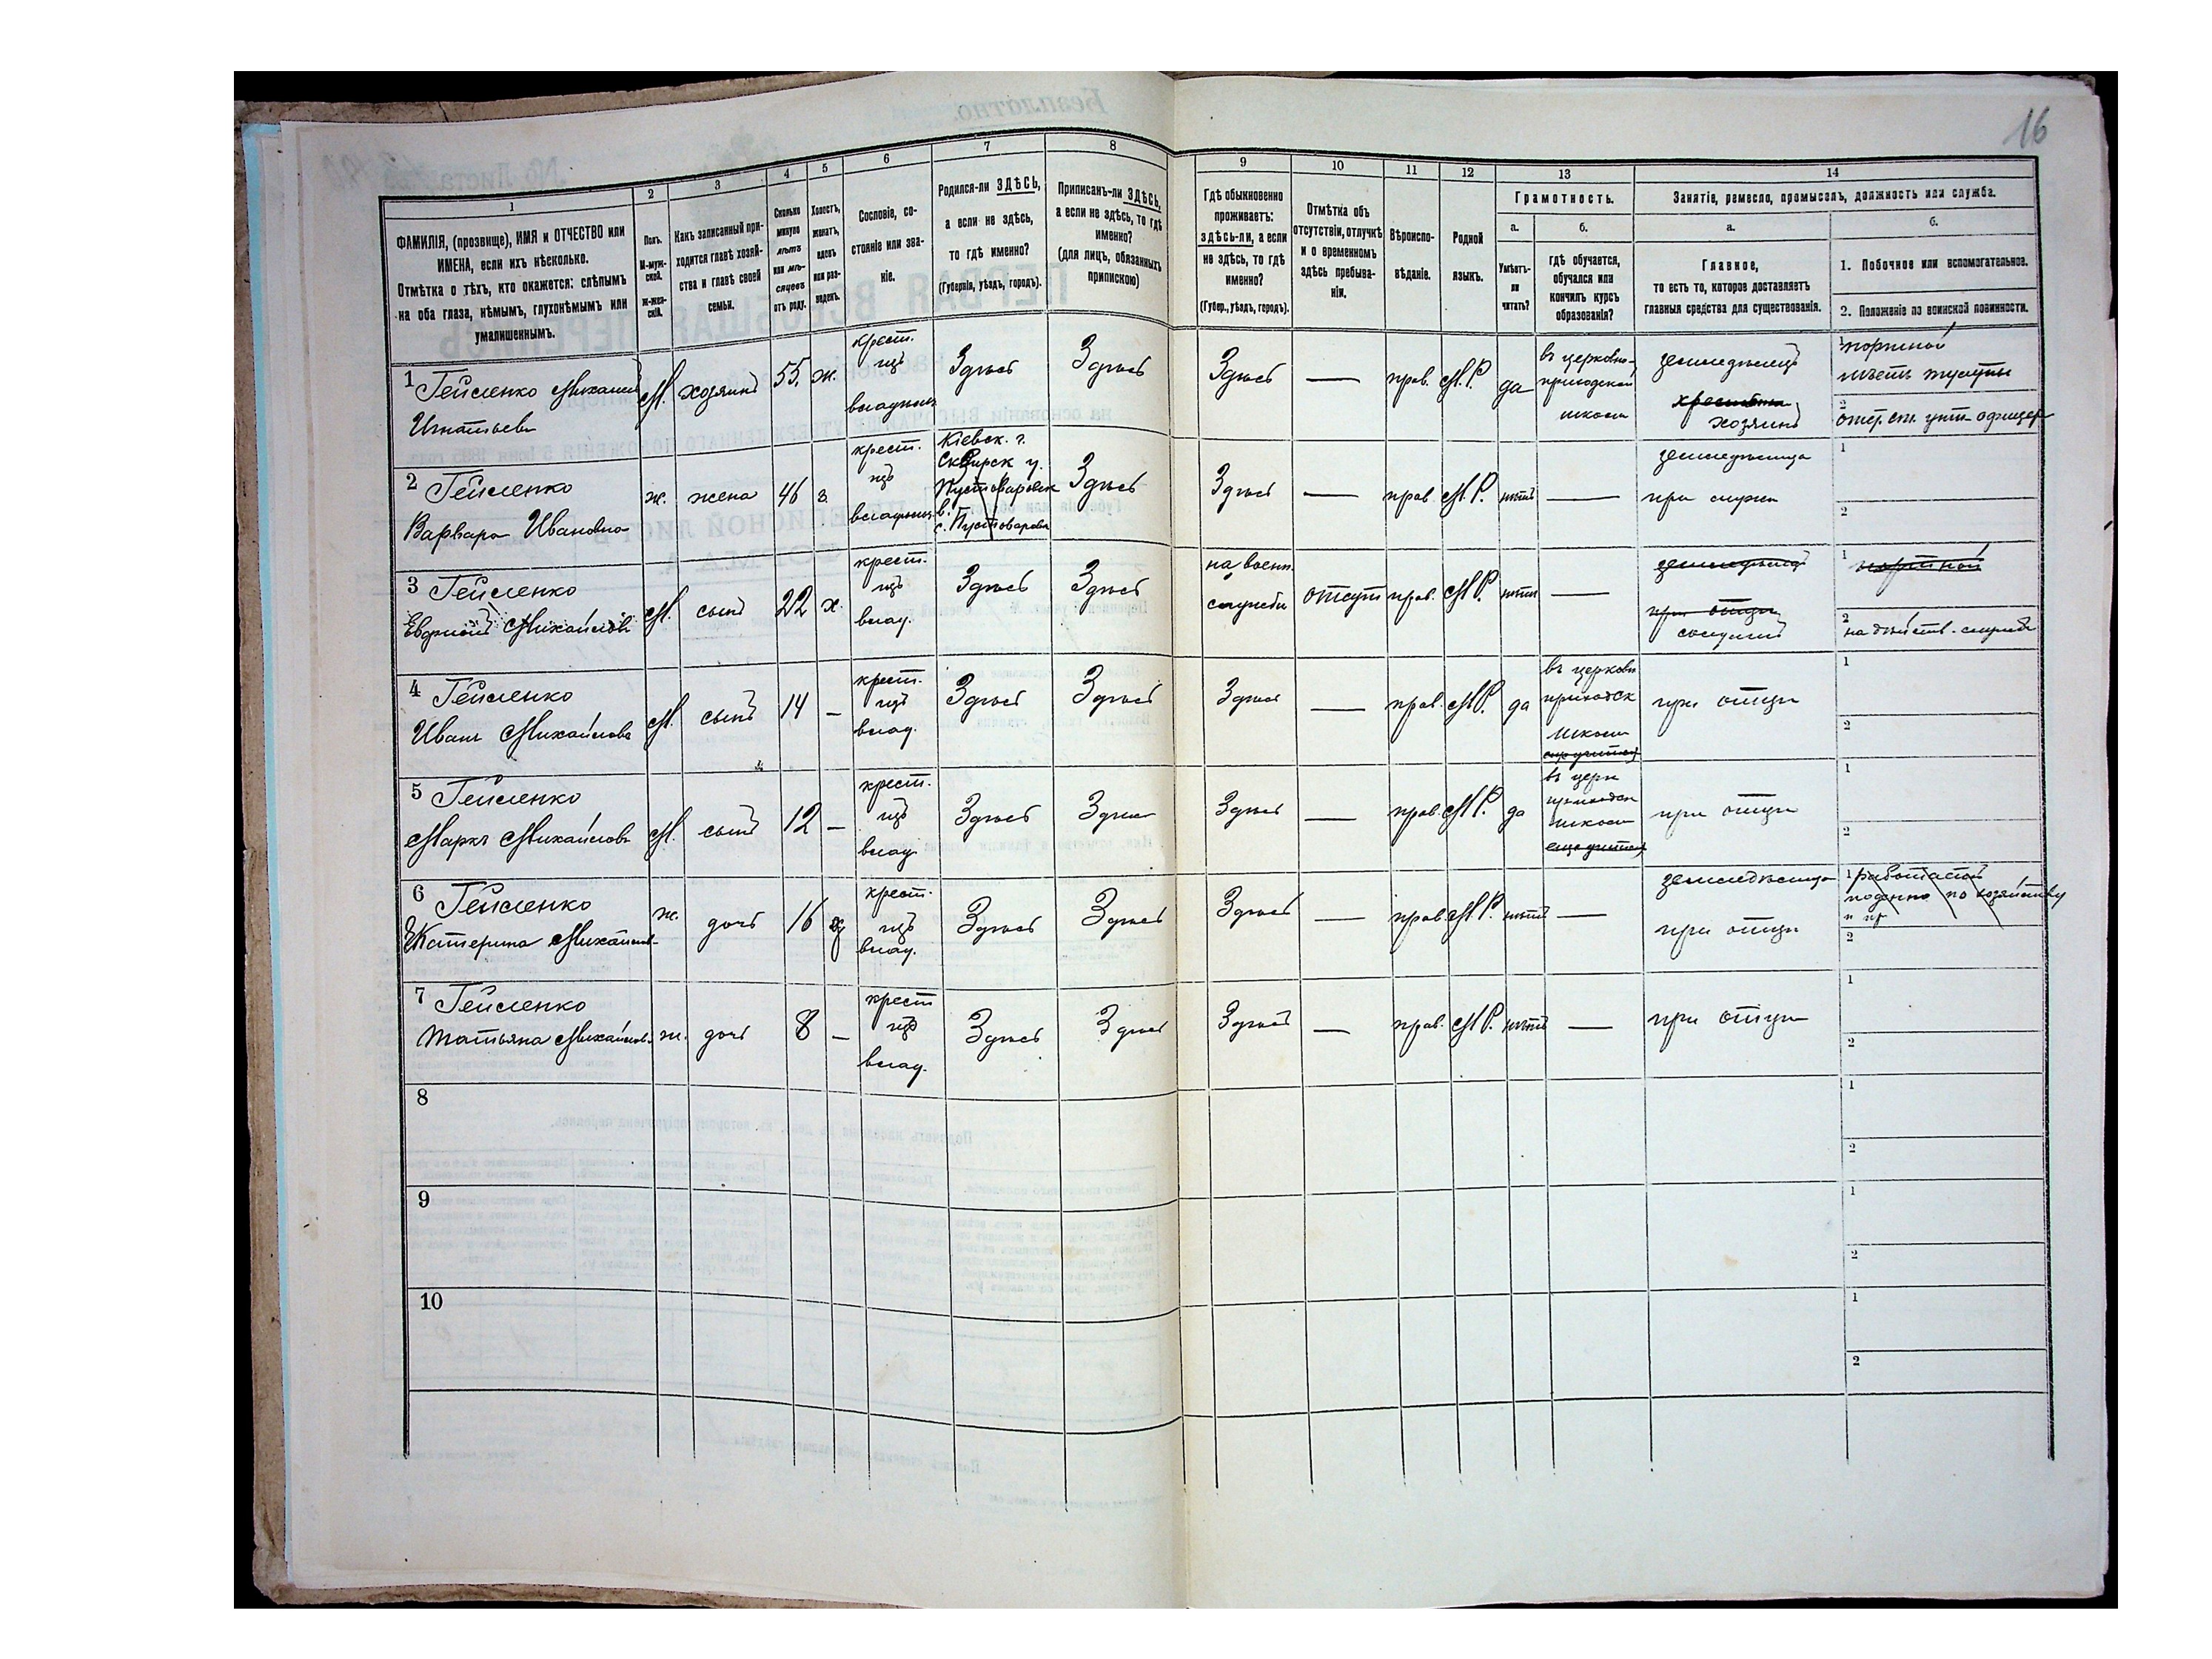 16
1
2
3
4
5
6
7
8
9
10
11
12
13
14
ФАМИЛІЯ, (прозвище), ИМЯ и ОТЧЕСТВО или
ИМЕНА, если ихъ нѣсколько.
Отмѣтка о тѣхъ, кто окажется: слѣпымъ
на оба глаза, нѣмымъ, глухонѣмымъ или
умалишеннымъ.
Полъ.
М-муж-
ской.
ж-жен-
скій.
Какъ записанный при-
ходится главѣ хозяй-
ства и главѣ своей
семьи.
Сколько
минуло
лѣтъ
или мѣ-
сяцевъ
отъ роду.
Холостъ,
женатъ,
вдовъ
или раз-
веденъ.
Сословіе, со-
стояніе или зва-
ніе.
Родился-ли ЗДѢСЬ,
а если не здѣсь,
то гдѣ именно?
(Губернія, уѣздъ, городъ).
Приписанъ-ли ЗДѢСЬ,
а если не здѣсь, то гдѣ
именно?
(для лицъ, обязанныхъ
припискою)
Гдѣ обыкновенно
проживаетъ:
здѣсь-ли, а если
не здѣсь, то гдѣ
именно?
(Губер., уѣздъ, городъ).
Отмѣтка объ
отсутствіи, отлучкѣ
и о временномъ
здѣсь пребыва-
ніи.
Вѣроиспо-
вѣданіе.
Родной
языкъ.
Грамотность.
а.
Умѣетъ-
ли
читать?
б.
гдѣ обучается,
обучался или
кончилъ курсъ
образованія?
Занятіе, ремесло, промыселъ, должность или служба.
а.
Главное,
то есть то, которое доставляетъ
главныя средства для существованія.
б.
1. Побочное или вспомогательное.
2. Положеніе по воинской повинности.
1 Гейленко Михаилъ
Игнатьевъ
М. хозяинъ 55. ж.
крест.
изъ
владѣльч.
Здѣсь Здѣсь Здѣсь — прав. М.Р. да
въ церковно-
приходской
школѣ
земледѣлецъ
хозяинъ
1 портной
2
отст. ст. унт-офицер
2 Гейленко
Варвара Ивановна
ж. жена 46 з.
крест.
изъ
владѣльч.
Кіевск. г.
Сквирск у.
Пустоваровск
в.
с. Пустоваровка
Здѣсь Здѣсь — прав. М.Р. нѣтъ —
земледѣлица
при мужѣ
1
2
3 Гейленко
Евфимій Михайловъ
М. сынъ 22 х.
крест.
изъ
влад.
Здѣсь Здѣсь
на военн.
службѣ
отсут прав. М.Р. нѣтъ —
земледѣлецъ
при отцѣ
солдатъ
1 портной
2
на дѣйств. службѣ
4 Гейленко
Иванъ Михайловъ
М. сынъ 14 —
крест.
изъ
влад.
Здѣсь Здѣсь Здѣсь — прав. М.Р. да
въ церковн
приходск
школѣ
еще учится
при отцѣ
1
2
5 Гейленко
Маркъ Михайловъ
М. сынъ 12 —
крест.
изъ
влад
Здѣсь Здѣсь Здѣсь — прав. М.Р. да
въ церк
приходск
школѣ
еще учится
при отцѣ
1
2
6 Гейленко
Екатерина Михайлов-
ж. дочь 16
крест.
изъ
влад.
Здѣсь Здѣсь Здѣсь — прав. М.Р. нѣтъ —
земледѣлица
при отцѣ
1 работаетъ
поденно по хозяйству
2
7 Гейленко
Татьяна Михайлов.
ж. дочь 8 —
крест
изъ
влад.
Здѣсь Здѣсь Здѣсь — прав. М.Р. нѣтъ —
при отцѣ
1
2
8
1
2
9
1
2
10
1
2